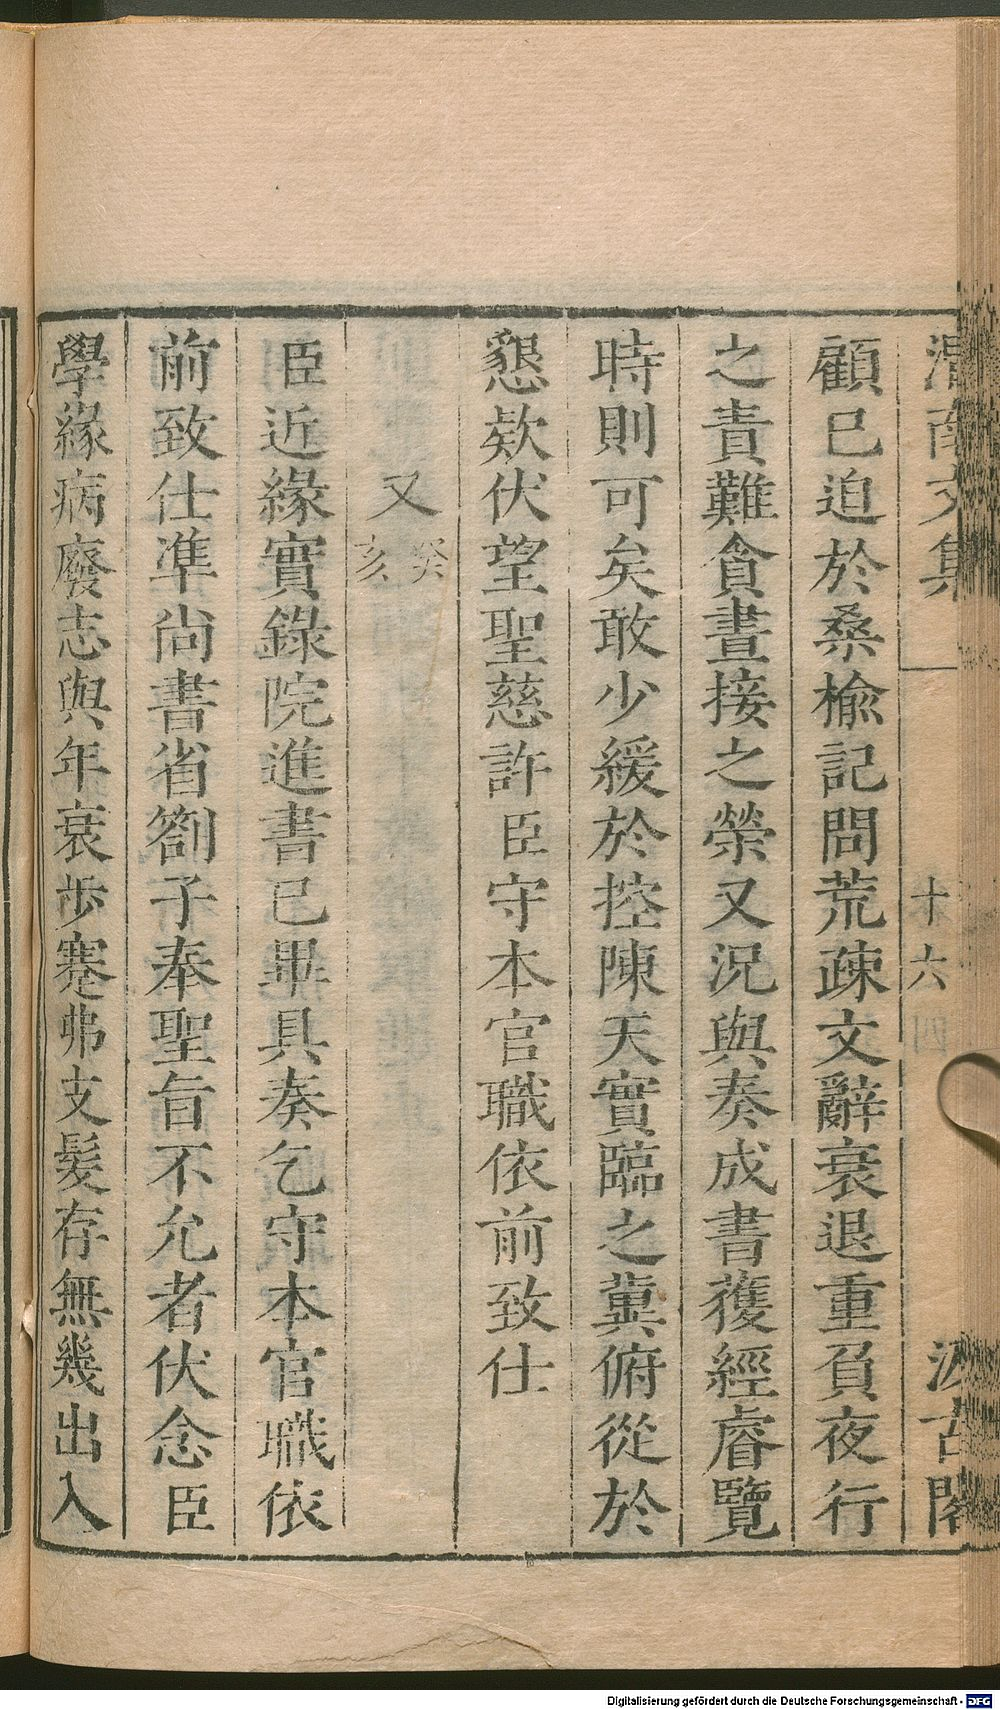 渭南文集
十六
四
汲古閣
顧已迫於桑楡記問荒疎文辭衰退重負夜行
之責難貪晝接之榮又況與奏成書獲經睿覽
時則可矣敢少緩於控陳天實臨之冀俯從於
懇欵伏望聖慈許臣守本官職依前致仕
又癸亥
臣近緣實錄院進書已畢具奏乞守本官職依
前致仕準尚書省劄子奉聖旨不允者伏念臣
學緣病廢志與年衰步蹇弗支髮存無幾出入
Digitalisierung gefördert durch die Deutsche Forschungsgemeinschaft - DFG